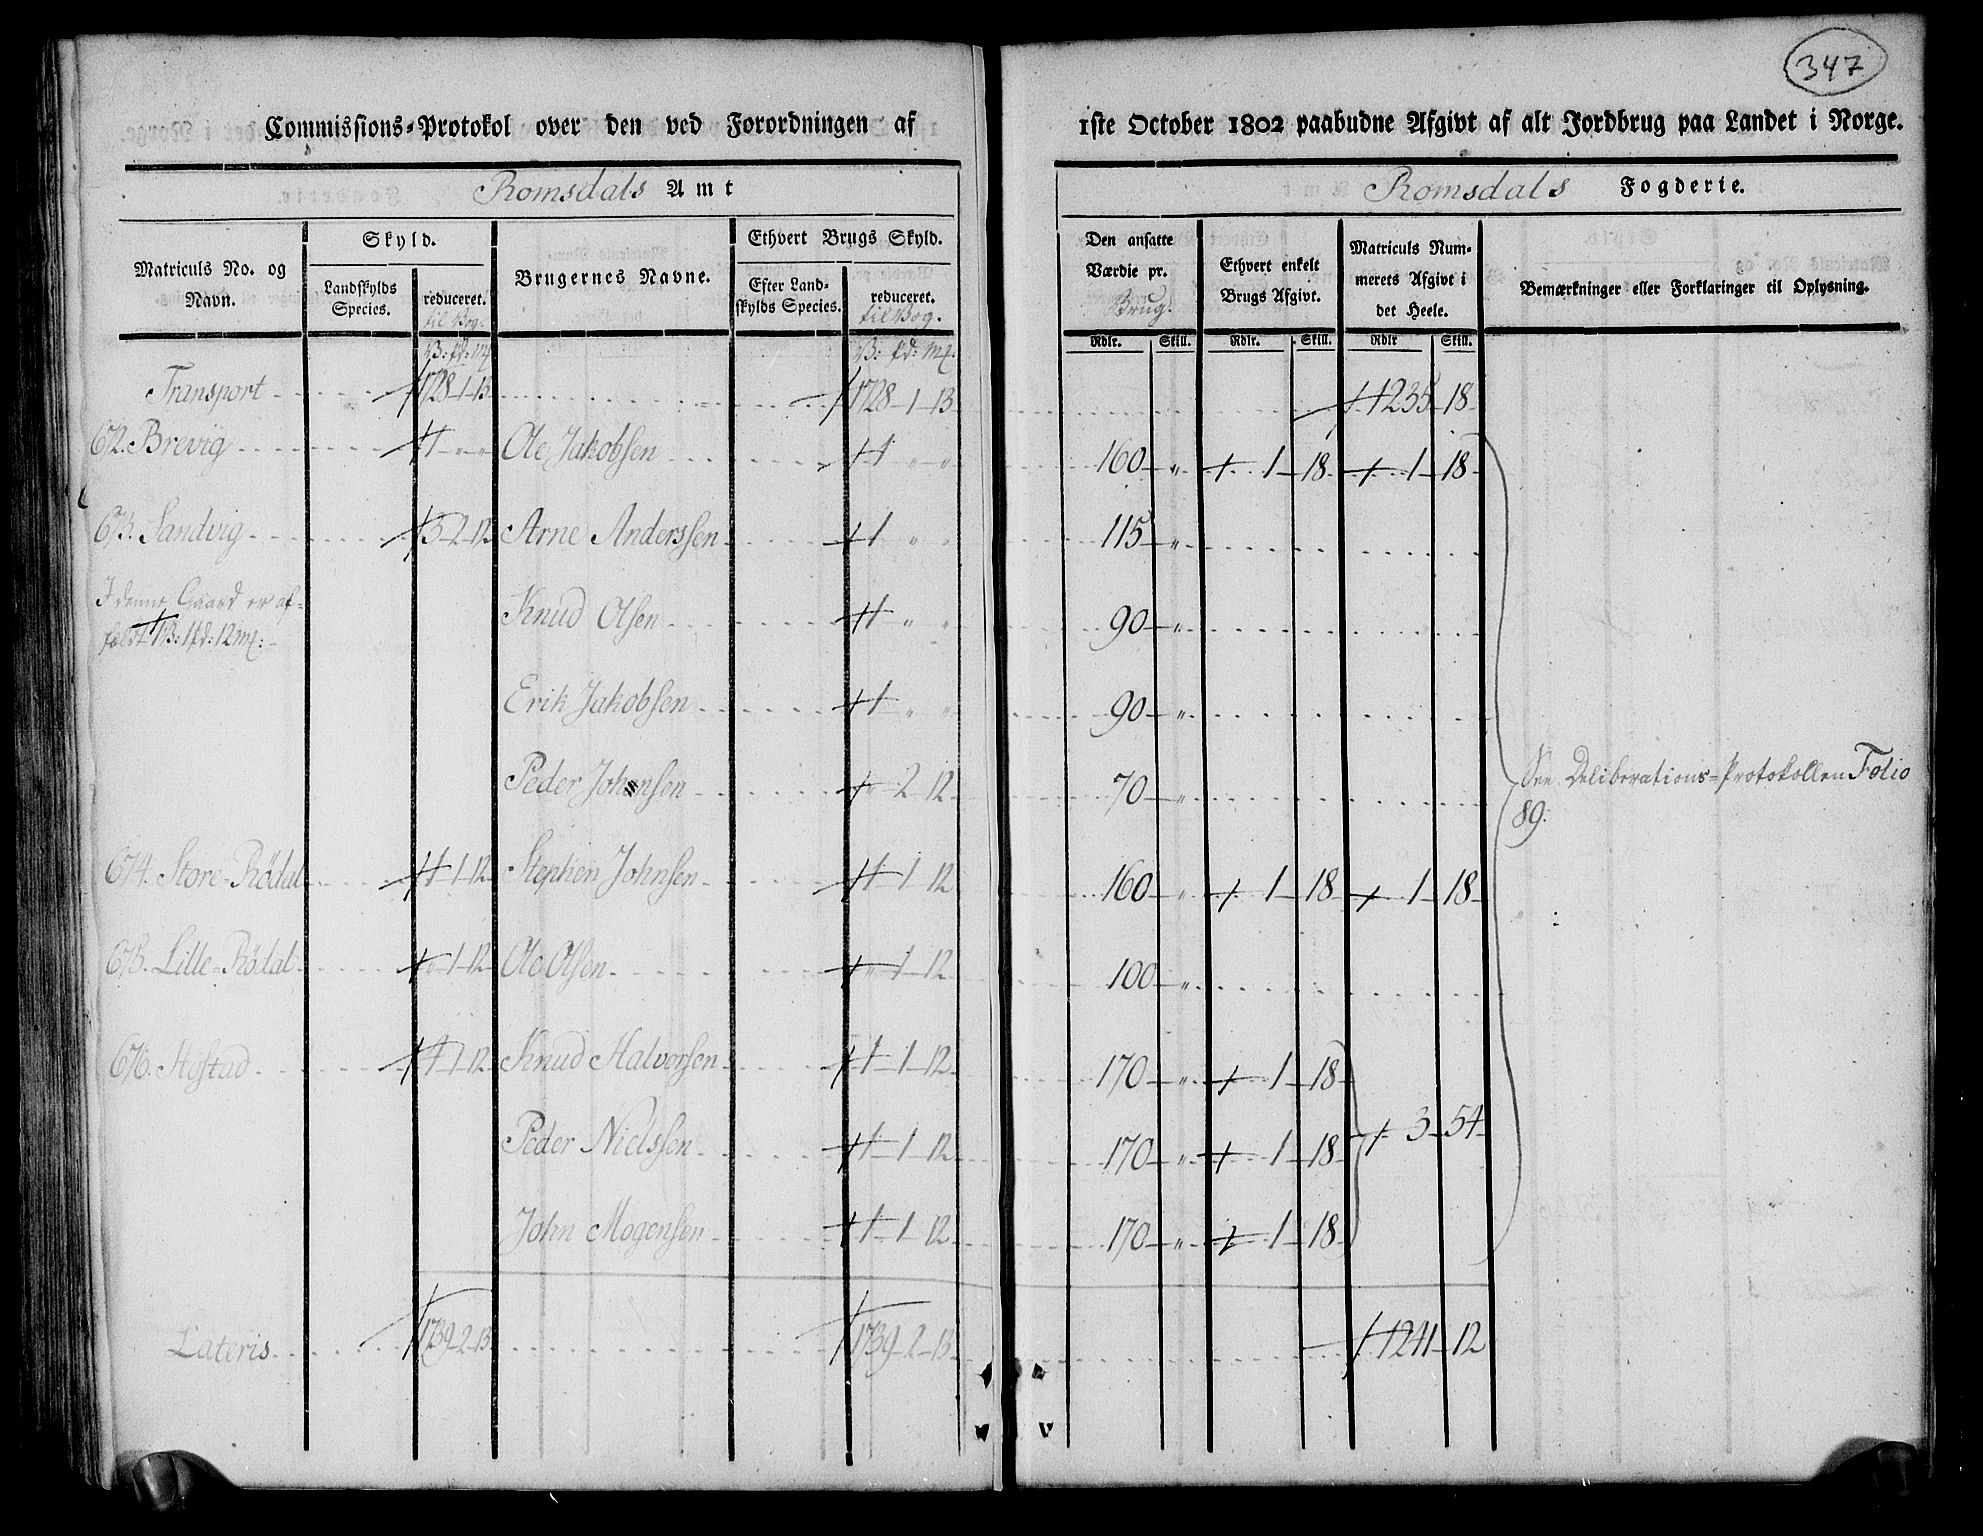 347
Commissions-Protokol over den ved Forordningen af 1ste October 1802 paabudne Afgivt af alt Jordbrug paa Landet i Norge.
Romsdals Amt Romsdals Fogderie.
Matriculs No. og Navn. | Skyld. | Brugernes Navne. | Ethvert Brugs Skyld. | Den ansatte Værdie pr. Brug. | Ethvert enkelt Brugs Afgivt. | Matriculs Nummerets Afgivt i det Heele. | Bemærkninger eller Forklaringer til Oplysning.
Landskylds Species. | reduceret. til Vog. | Efter Landskylds Species. | reduceret. til Vog.
V: pd: mk. | V: pd: mk. | Rdlr. | Skill. | Rdlr. | Skill. | Rdlr | Skill.
Transport 1728-1-13 1728-1-13 1235-18
672. Brevig 1 " " Ole Jakobsen 1 " " 160 " 1-18 1-18
673. Sandvig 3-2-12 Arne Anderssen 1 " " 115 "
I denne Gaard er af- Knud Olsen 1 " " 90 "
fældt 1V: 1pd: 12mk:
Erik Jakobsen 1 " " 90 "
Peder Johnsen " 2 12 70 "
See Deliberations-Protokollen Folio
89.
674. Store-Rödal 1-1-12 Stephen Johnsen 1-1-12 160 " 1-18 1-18
675. Lille-Rödal "-1-12 Ole Olsen "-1-12 100 "
676. Hostad 4-1-12 Knud Halvorsen 1-1-12 170 " 1-18
Peder Nielssen 1-1-12 170 " 1-18 3-54
John Mogensen 1-1-12 170 " 1-18
Lateris 1739-2-13 1739-2-13 1241-12